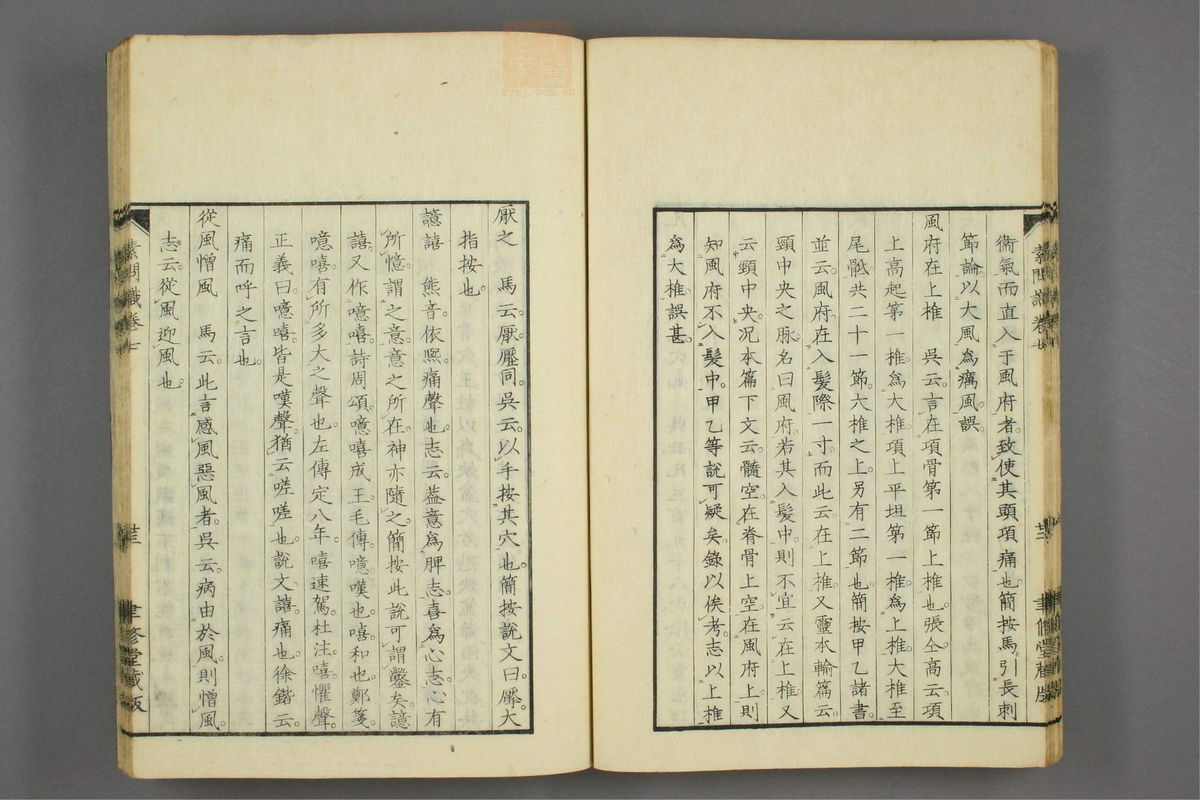 衞氣而直入于風府者致使其頭項痛也簡按馬引長刺
節論以大風爲癘風誤
風府在上椎 吳云言在項骨第一節上椎也張仝高云項
上高起第一椎爲大椎項上平坦第一椎爲上椎大椎至
尾骶共二十一節大椎之上另有二節也簡按甲乙諸書
並云風府在入髮際一寸而此云在上椎又靈本輸篇云
頸中央之脉名曰風府若其入髮中則不宜云在上椎又
云頸中央況本篇下文云髓空在脊骨上空在風府上則
知風府不入髮中甲乙等說可疑矣錄以俟考志以上椎
爲大椎誤甚
厭之 馬云厭壓同吳云以手按其穴也簡按說文曰擪大
指按也
譩譆 熊音依熙痛聲也志云葢意爲脾志喜爲心志心有
所憶謂之意意之所在神亦隨之簡按此說可謂鑿矣譩
譆又作噫嘻詩周頌噫嘻成王毛傳噫嘆也嘻和也鄭箋
噫嘻有所多大之聲也左傳定八年嘻速駕杜注嘻懼聲
正義曰噫嘻皆是嘆聲猶云嗟嗟也說文譆痛也徐鍇云
痛而呼之言也
從風憎風 馬云此言感風惡風者吳云病由於風則憎風
志云從風迎風也
素問識卷七
聿修堂藏版